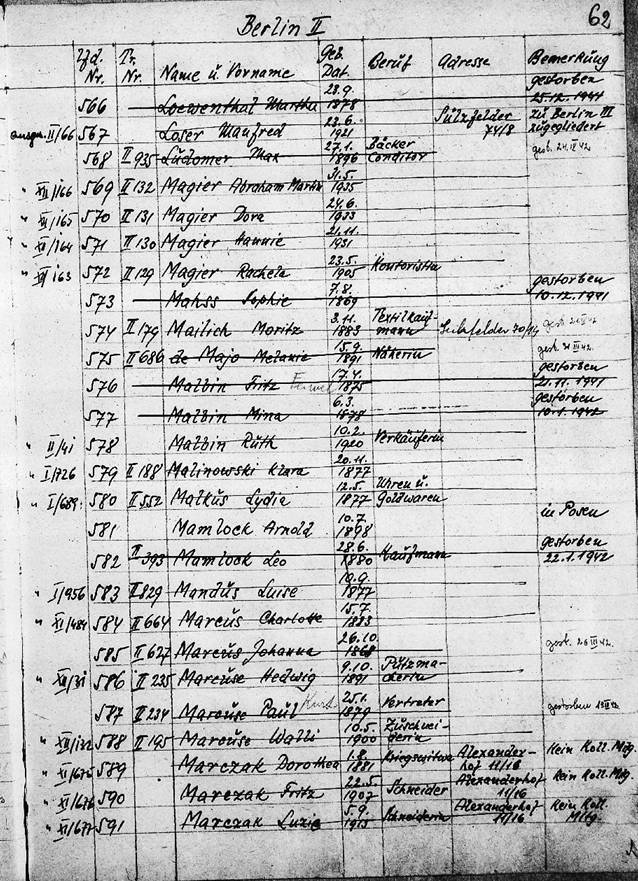 Berlin II
62
Lfd. Nr. Tr. Nr. Name u. Vorname Geb. Dat. Beruf Adresse Bemerkung
566 Loewenthal Martha 23.9. 1878 gestorben 25.12.1941
II/66 567 Loser Manfred 23.6. 1921 Sulzfelder 74/8 zu Berlin III zugegliedert
568 II 935 Ludomer Max 27.1. 1896 Bäcker Conditor gest. 24.III 42
" XII/166 569 II 132 Magier Abraham Martin 31.5. 1935
" XII/165 570 II 131 Magier Dora 24.6. 1933
" XII/164 571 II 130 Magier Hannie 21.11. 1931
" XII/163 572 II 129 Magier Rachela 23.5. 1905 Kontoristin
573 Mahss Sophie 7.8. 1869 gestorben 10.12.1941
574 II 179 Mailich Moritz 3.11. 1883 Textilkaufmann
575 II 686 de Majo Melanie 15.9. 1891 Näherin
576 Malbin Fritz 17.4. 1875 gestorben 21.11.1941
577 Malbin Mina 6.3. 1878 gestorben 10.1.1942
" II/41 578 Malbin Ruth 10.2. 1920 Verkäuferin
" I/726 579 II 188 Malinowski Klara 20.11. 1877
" I/689 580 II 552 Malkus Lydia 12.5. 1877 Uhren u. Goldwaren
581 Mamlock Arnold 10.7. 1898 in Posen
582 II 393 Mamlock Leo 28.6. 1880 Kaufmann gestorben 22.1.1942
" I/956 583 II 829 Mandus Luise 10.9. 1877
" XI/484 584 II 664 Marcus Charlotte 15.7. 1883
585 II 627 Marcus Johanna 26.10. 1868 gest. 26 III 42.
" XII/31 586 II 235 Marcuse Hedwig 9.10. 1891 Putzmacherin
587 II 234 Marcuse Paul Kurt 25.1. 1879 Vertreter gestorben
" XII/132 588 II 195 Marcuse Walli 10.5. 1900 Zuschneiderin
" XI/675 589 Marczak Dorothea 1.8. 1881 Kriegswitwe Alexanderhof 11/16 Kein Koll. Mtg.
" XI/676 590 Marczak Fritz 22.5. 1907 Schneider Alexanderhof 11/16 Kein Koll. Mtg.
" XI/677 591 Marczak Luzie 5.9. 1913 Schneiderin Alexanderhof 11/16 Kein Koll. Mtg.